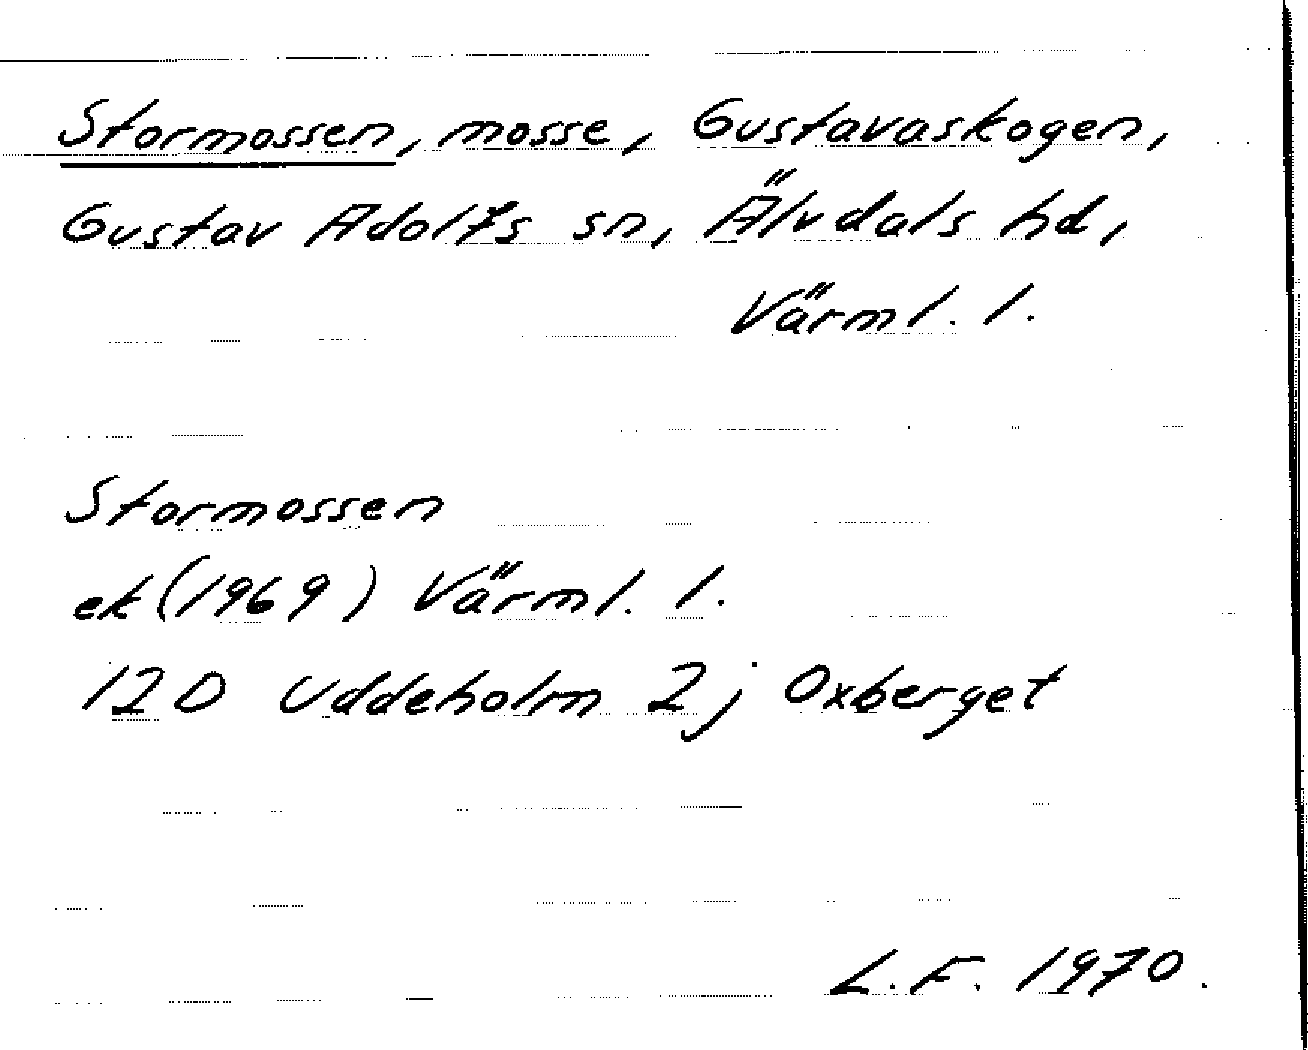 Stormossen, mosse, Gustavaskogen,
Gustav Adolfs sn, Älvdals hd,
Värml. l.
Stormossen
ek (1969) Värml. l.
12D Uddeholm 2j Oxberget
L.F. 1970.